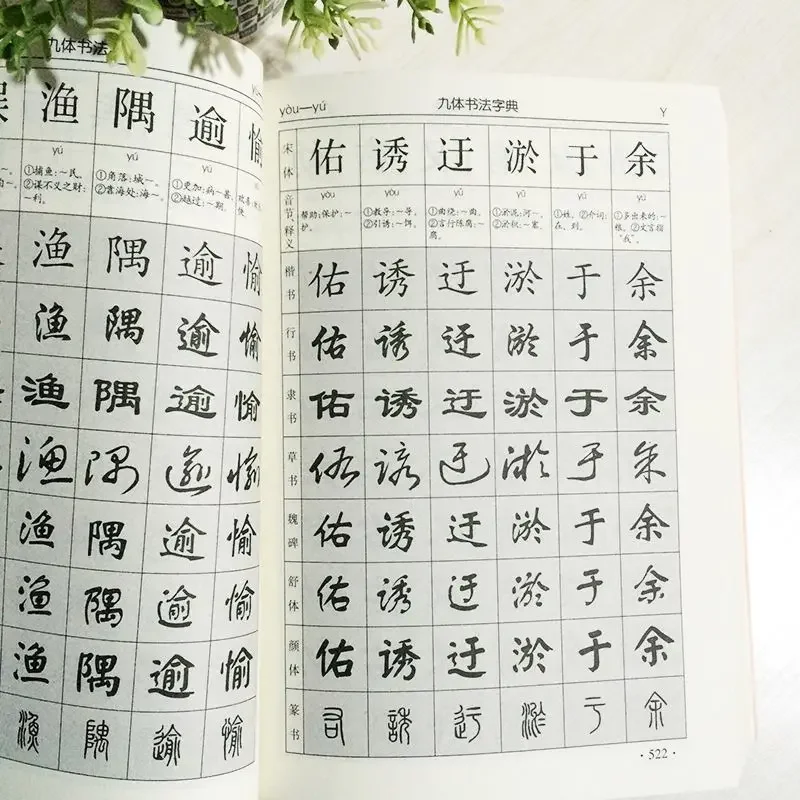 九体书法
渔 隅 逾 愉
yú yú yú
①捕鱼:~民。 ①角落:城~。 ①更加:病~甚。
②谋不义之财: ②靠海处:海~。 ②越过:~期。
~利。
渔 隅 逾 愉
渔 隅 逾 愉
渔 隅 逾 愉
渔 隅 逾 愉
渔 隅 逾 愉
渔 隅 逾 愉
渔 隅 逾 愉
渔 隅 逾 愉
yòu—yú 九体书法字典 Y
宋体 佑 诱 迂 淤 于 余
音节、释义 yòu yòu yū yū yú yú
帮助:保护:~ ①教导:~导。 ①曲绕:~曲。 ①淤泥:河~。 ①姓。②介词: ①多出来的:~
护。 ②引诱:~饵。 ②言行陈腐:~ ②淤积:~塞。 在、到。 粮。②文言指
腐。 “我”。
楷书 佑 诱 迂 淤 于 余
行书 佑 诱 迂 淤 于 余
隶书 佑 诱 迂 淤 于 余
草书 佑 诱 迂 淤 于 余
魏碑 佑 诱 迂 淤 于 余
舒体 佑 诱 迂 淤 于 余
颜体 佑 诱 迂 淤 于 余
篆书 佑 诱 迂 淤 于 余
·522·